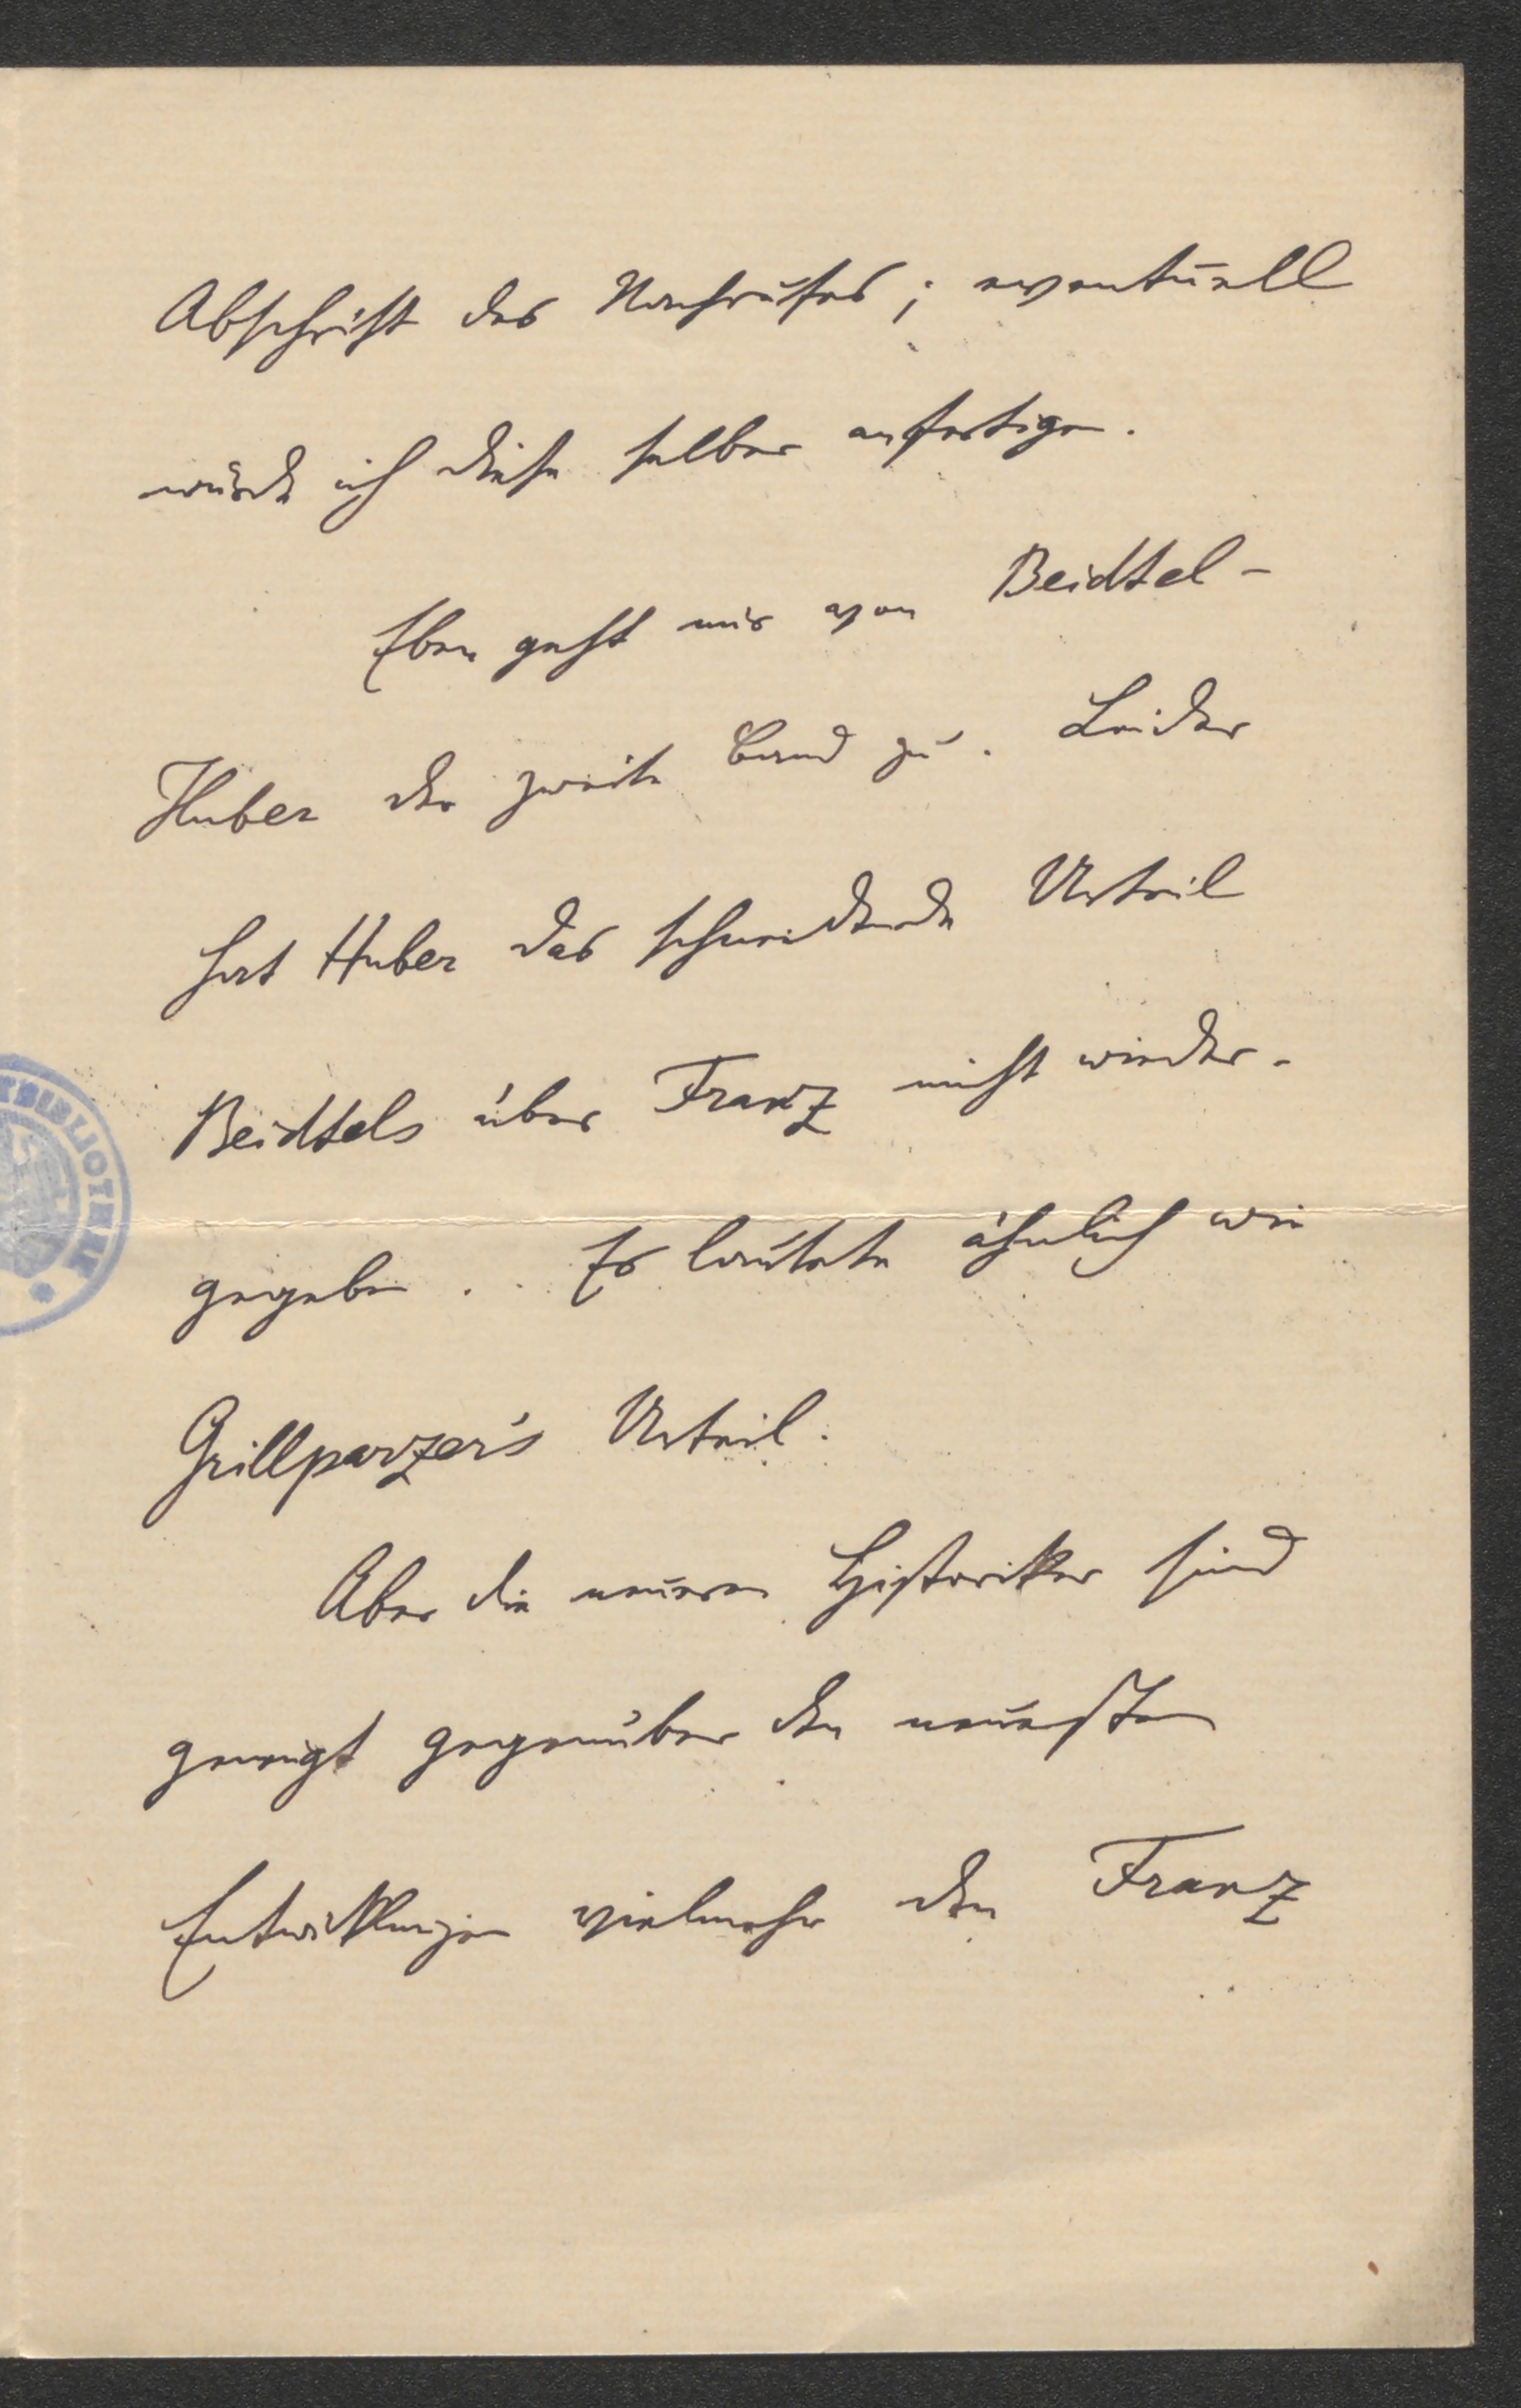 Abschrift des Nachrufes; eventuell
würde ich diese selber anfertigen.
Eben geht mir von Beidtel-
Huber der zweite Band zu. Leider
hat Huber das schneidende Urteil
Beidtels über Franz nicht wieder-
gegeben. Es lautete ähnlich wie
Grillparzer's Urteil.
Aber die neueren Historiker sind
geneigt gegenüber den neuesten
Entwicklungen vielmehr den Franz
TBIBLIOTHEK